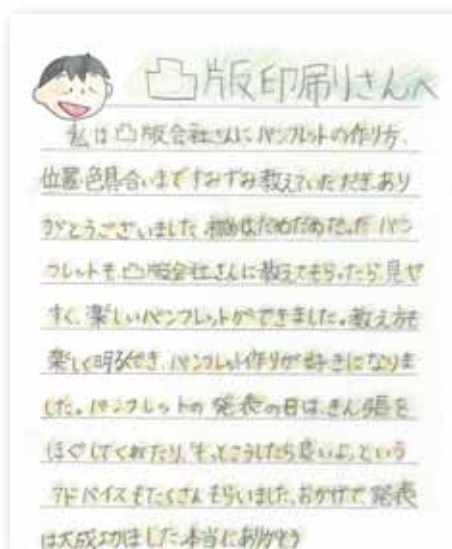 凸版印刷りさんへ
私は凸版会社さんにパンフレットの作り方、
位置・色具合いまですみずみ教えていただき、あり
がとうございました。初めはだめだめだったパン
フレットも、凸版会社さんに教えてもらったら、見や
すく、楽しいパンフレットができました。教え方も
楽しく明るくでき、パンフレット作りが好きになりま
した。パンフレットの発表の日は、きん張を
ほぐしてくれたり、「もっとこうしたら良いよ。」という
アドバイスもたくさんもらいました。おかげで、発表
は大成功しました。本当にありがとう